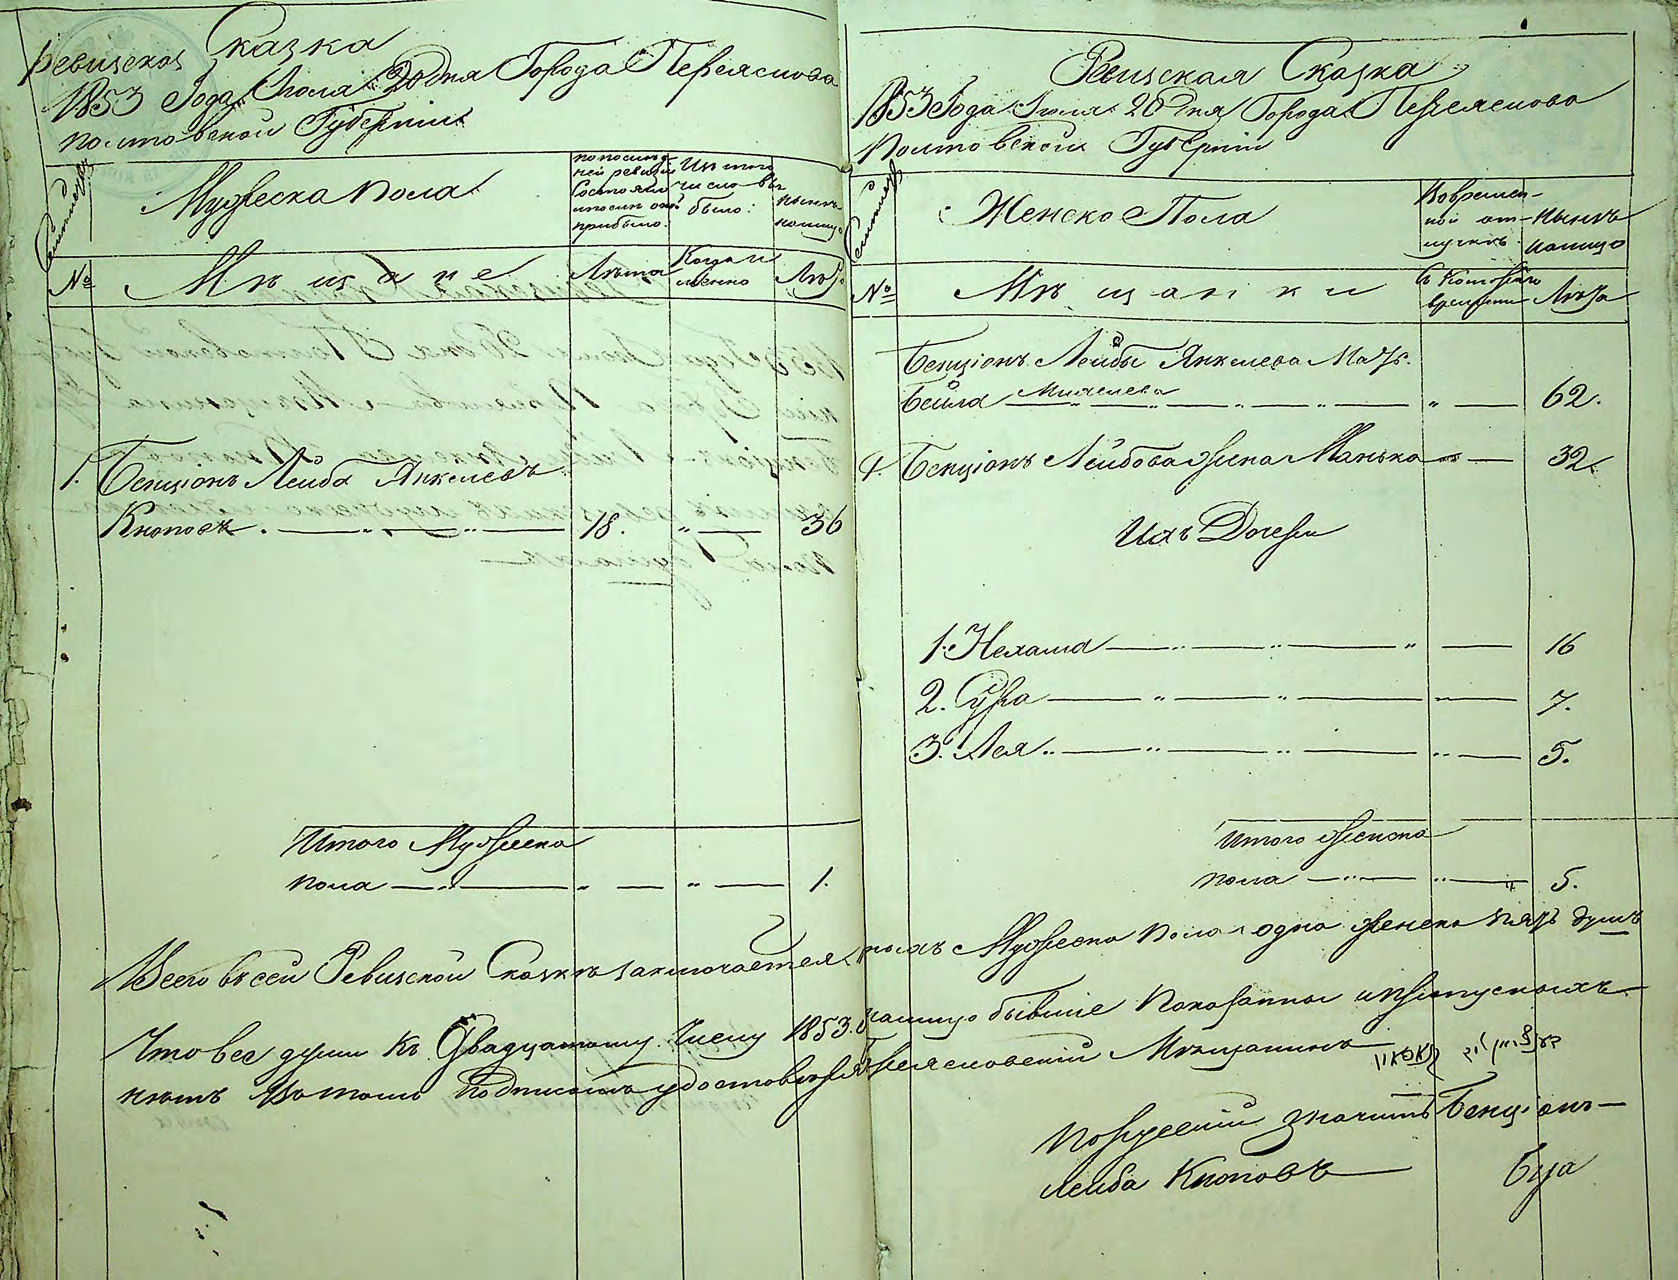 Ревизская Сказка
1853 Года Июля 20 дня Города Переяслова
Полтавской Губернии
Семейства
Мужеска пола
по послед-
ней ревизии
состояло
и после оной
прибыло.
Из того
числа вы-
было:
ныне
налицо
№
Мѣщане
Лѣта
Когда и
именно
Лѣта
1. Бенціонъ Лейба Янкелевъ
Кноповъ. 18. " 36
Итого Мужеска
пола " " 1.
Ревизская Сказка
1853 Года Июля 20 дня Города Переяслова
Полтовской Губерніи
Семейства
Женско Пола
Во времен-
ной от-
лучкѣ
нынѣ
налицо
№
Мѣщанки
Съ котораго
времени
Лѣта
Бенціонъ Лейбы Янкелева Мать
Бейла " " " " 62.
1. Бенціонъ Лейбова жена Манька 32
Ихъ Дочери
1. Нехама " " " 16
2. Сура " " " 7.
3. Лея " " " " 5.
Итого женска
пола " " 5.
Всего въ сей Ревизской Сказкѣ заключается Мужеска пола одна женска пять душъ
Что все души къ Двадцатому Числу 1853. налицо бывшіе показанны и пропускныхъ
нѣтъ въ томъ Подписомъ удостовѣряю Переясловскій Мѣщанинъ
по руссіи значитъ Бенціонъ
Лейба Кноповъ